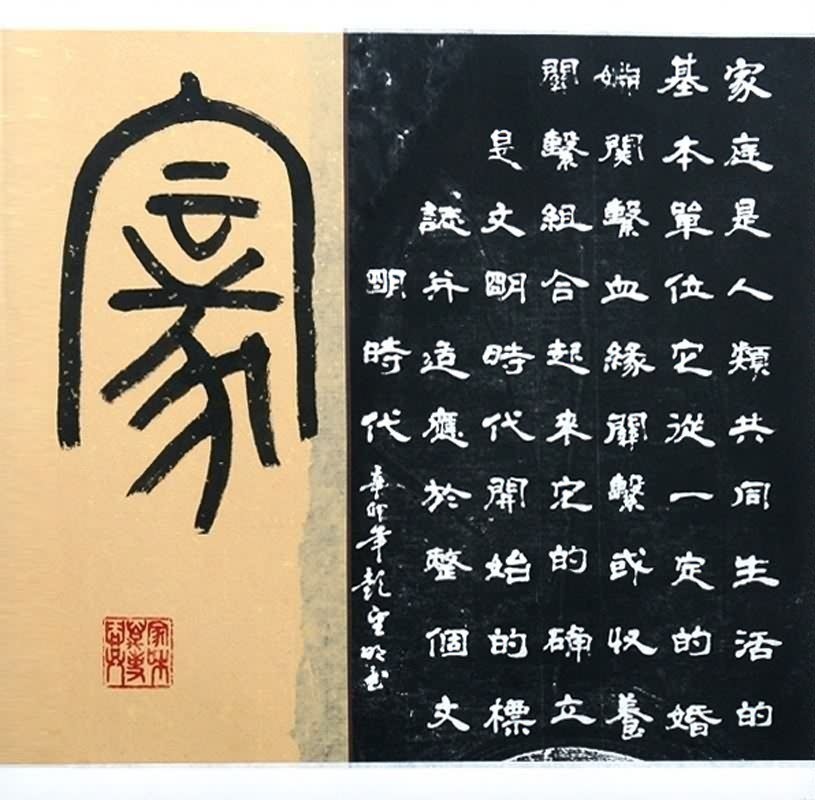 家庭是人類共同生活的
基本單位它從一定的婚
姻關繫血緣關繫或收養
關繫組合起来它的確立
是文明時代開始的標
誌并适應於整個文
明時代
辛卯年彭明书
家